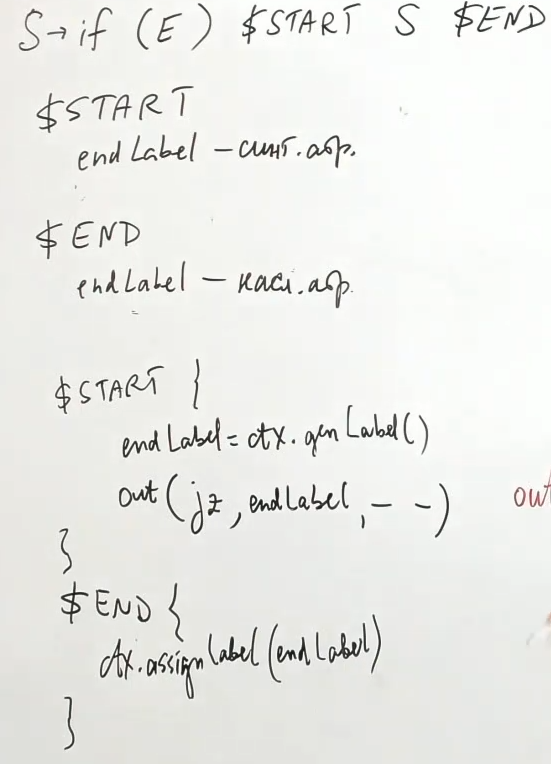 S → if (E) $START S $END
$START
endLabel – синт. атр.
$END
endLabel – насл. атр.
$START {
endLabel = ctx.genLabel()
out(jz, endLabel, – –)
out
}
$END {
ctx.assignLabel(endLabel)
}